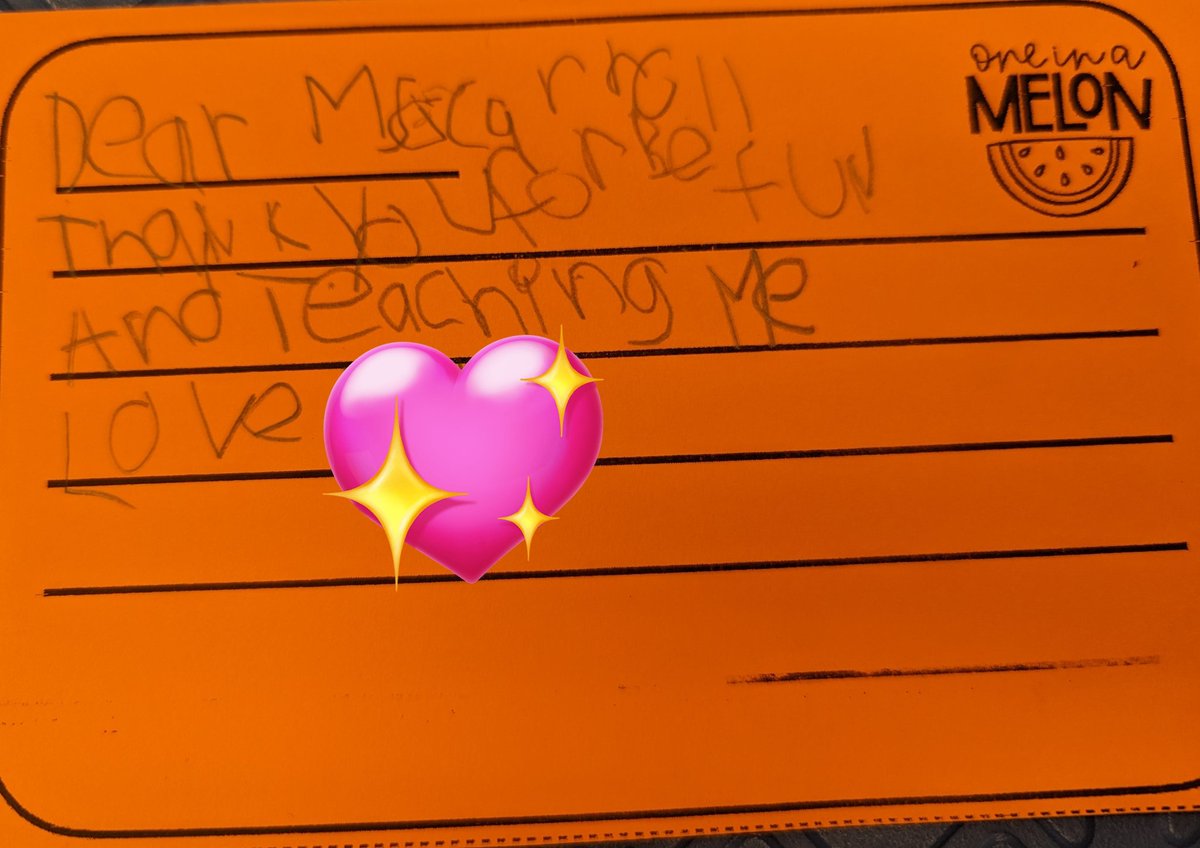 Dear
one in a
MELON
Thank You for Be fun
And Teaching Me
Love